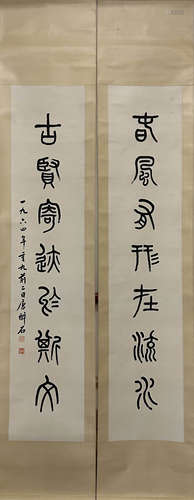 春風有形在流水
古賢寄跡於斯文
一九六四年重九前二日唐醉石